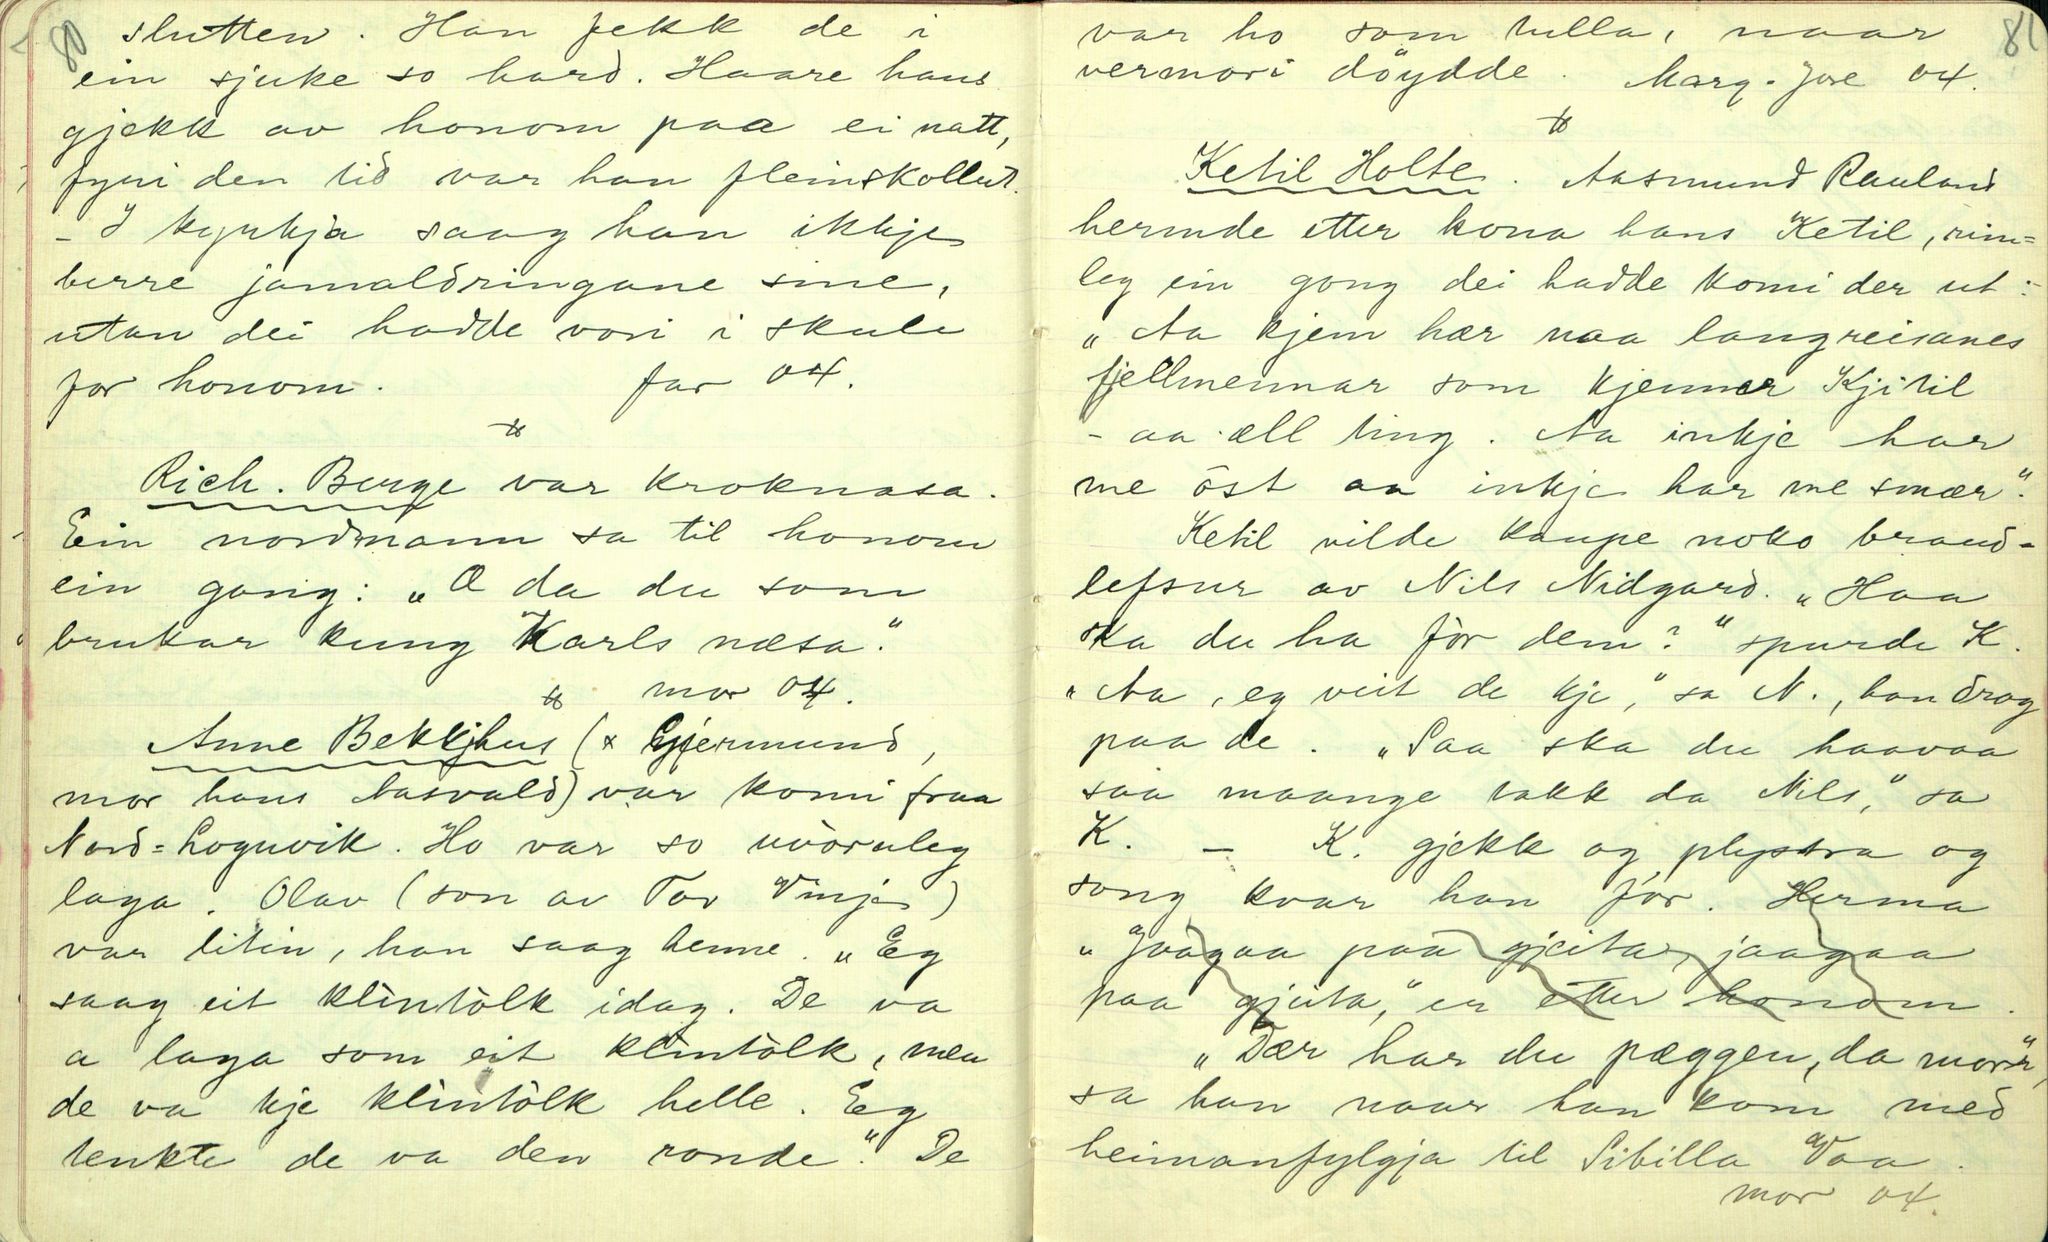 80
slutten. Han fekk de i
ein sjuke so hard. Haare hans
gjekk av honom paa ei natt,
fyri den tid var han fleinskollut.
- I kyrkja saag han ikkje
berre jamaldringane sine,
utan dei hadde vori i skule
for honom. far 04.
Rich. Berge var kroknasa.
Ein nordmann sa til honom
ein gong: „O da du som
brukar kung Karls næsa."
mor 04.
Anne Bekkjhus (x Gjermund,
mor hans Aasvald) var komi fraa
Nord=Loguvik. Ho var so uvòruleg
laga. Olav (son av Tov Vinje)
var litin, han saag henne. „Eg
saag eit klintòlk idag. De va
a laga som eit klintòlk, men
de va kje klintòlk helle. Eg
tenkte de va den vonde." De
81
var ho som tulla, naar
vermori döydde. Marg. Jore 04.
Ketil Holte. Aasmund Rauland
hermde etter kona hans Ketil, rim=
leg ein gong dei hadde komi der ut:
„Aa kjem hær naa langreisanes
fjellmennar som kjenner Kjitil
- aa æll ting. Aa inkje har
me öst aa inkje har me smær".
Ketil vilde kaupe noko braud-
lefsur av Nils Nidgard. „Haa
ska du ha fòr dem?" spurde K.
„Aa, eg veit de kje," sa N., han drog
paa de. „Saa ska du haavaa
saa maange takk da Nils," sa
K. - K. gjekk og plystra og
song kvar han fór. Herma
„Jaagaa paa gjeita, jaagaa
paa gjeita," er etter honom.
„Dær har du pæggen, da mor",
sa han naar han kom med
heimanfylgja til Sibilla Vaa.
mor 04.